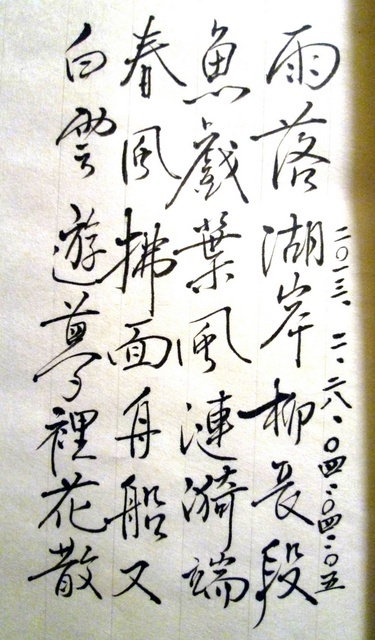 二〇一三.二.二八.〇四:〇四:〇五
雨落湖岸柳長段
魚戲葉風漣漪端
春風拂面舟船又
白雲遊夢裡花散